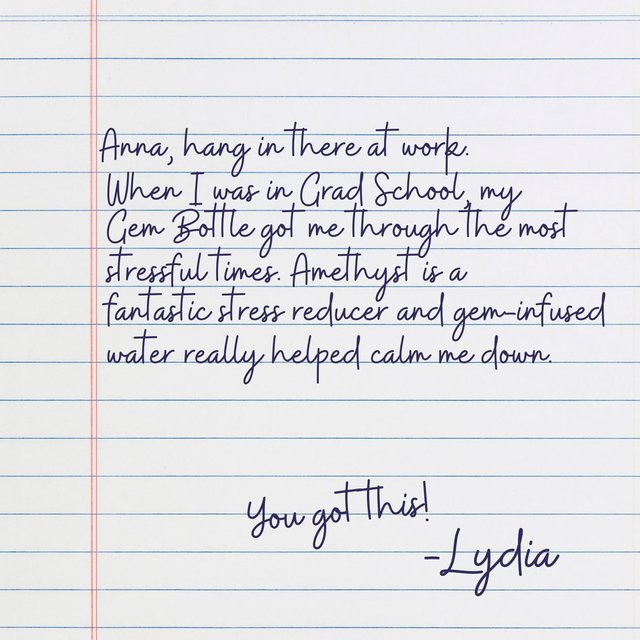 Anna, hang in there at work.
When I was in Grad School, my
Gem Bottle got me through the most
stressful times. Amethyst is a
fantastic stress reducer and gem-infused
water really helped calm me down.
You got this!
-Lydia